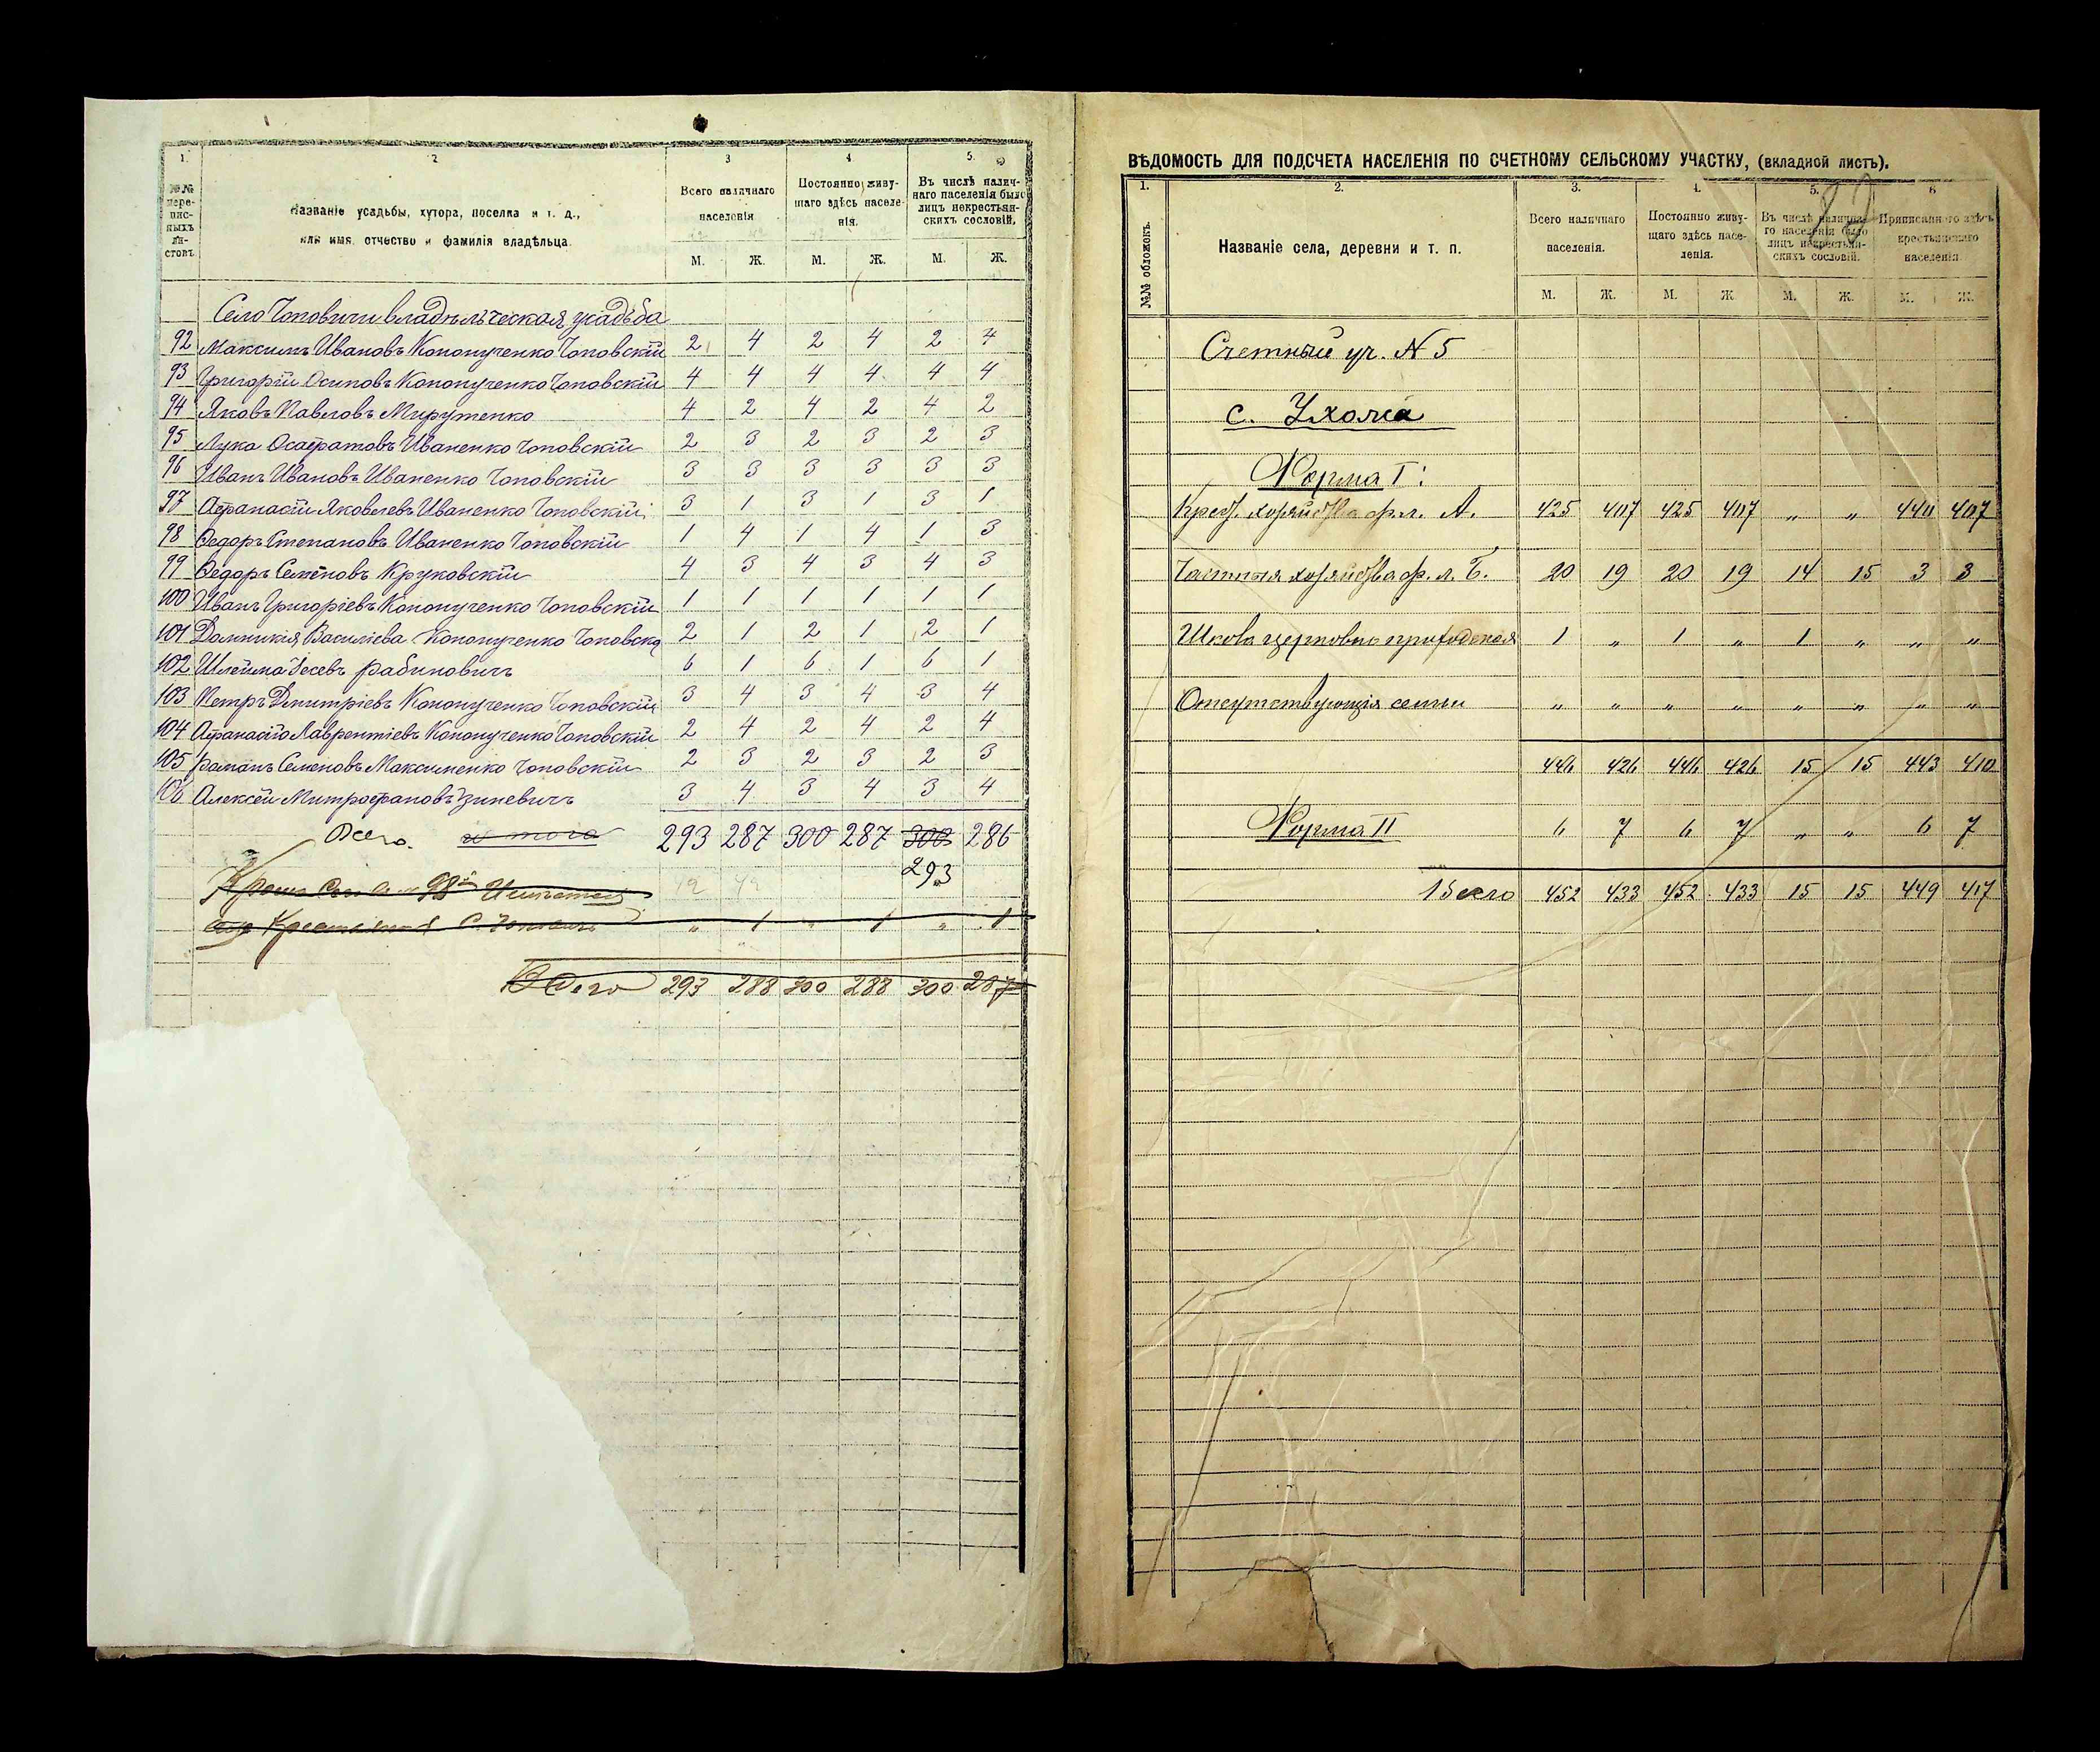 1. 2 3 4 5.
№№ переписныхъ листовъ
Названіе усадьбы, хутора, поселка и т. д.,
или имя, отчество и фамилія владѣльца.
Всего наличнаго населенія
Постоянно живущаго здѣсь населенія.
Въ числѣ наличнаго населенія было лицъ некрестьянскихъ сословій.
М. Ж. М. Ж. М. Ж.
Село Чоповичи владѣльческая усадьба
92 Максимъ Ивановъ Конопученко Чоповскій 2 4 2 4 2 4
93 Григорій Осиповъ Конопученко Чоповскій 4 4 4 4 4 4
94 Яковъ Павловъ Мирутенко 4 2 4 2 4 2
95 Лука Осафатовъ Иваненко Чоповскій 2 3 2 3 2 3
96 Иванъ Ивановъ Иваненко Чоповскій 3 3 3 3 3 3
97 Афанасій Яковлевъ Иваненко Чоповскій 3 1 3 1 3 1
98 Федоръ Степановъ Иваненко Чоповскій 1 4 1 4 1 3
99 Федоръ Семёновъ Круковскій 4 3 4 3 4 3
100 Иванъ Григоріевъ Конопученко Чоповскій 1 1 1 1 1 1
101 Домникія Василіева Конопученко Чоповска 2 1 2 1 2 1
102 Шлейма Рабиновичъ 6 1 6 1 6 1
103 Петръ Дмитріевъ Конопученко Чоповскій 3 4 3 4 3 4
104 Афанасій Лаврентіевъ Конопученко Чоповскій 2 4 2 4 2 4
105 Романъ Семеновъ Максименко Чоповскій 2 3 2 3 2 3
106 Алексѣй Митрофановъ Зиневичъ 3 4 3 4 3 4
Всего. итого 293 287 300 287 300 286
293
98
„ 1 „ 1 „ 1
Всего 293 288 300 288 300 287
ВѢДОМОСТЬ ДЛЯ ПОДСЧЕТА НАСЕЛЕНІЯ ПО СЧЕТНОМУ СЕЛЬСКОМУ УЧАСТКУ, (вкладной листъ).
1. 2. 3. 4. 5. 6
№№ обложокъ.
Названіе села, деревни и т. п.
Всего наличнаго населенія.
Постоянно живущаго здѣсь населенія.
Въ числѣ наличнаго населенія было лицъ некрестьянскихъ сословій.
Приписаннаго здѣсь крестьянскаго населенія
М. Ж. М. Ж М. Ж. М. Ж.
Счетный уч. № 5
с. Ухома
Форма I:
Крест. хозяйства ф. л. А. 425 407 425 407 „ „ 440 407
Частныя хозяйства ф. л. Б. 20 19 20 19 14 15 3 3
Школа церковно-приходская 1 „ 1 „ 1 „ „ „
Отсутствующія семьи „ „ „ „ „ „ „ „
446 426 446 426 15 15 443 410
Форма II 6 7 6 7 „ „ 6 7
Всего 452 433 452 433 15 15 449 417